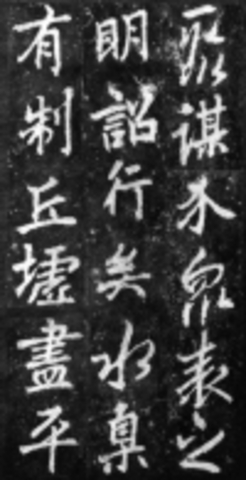 聚謀衆表之
明詔行矣水臬
有制丘墟盡平